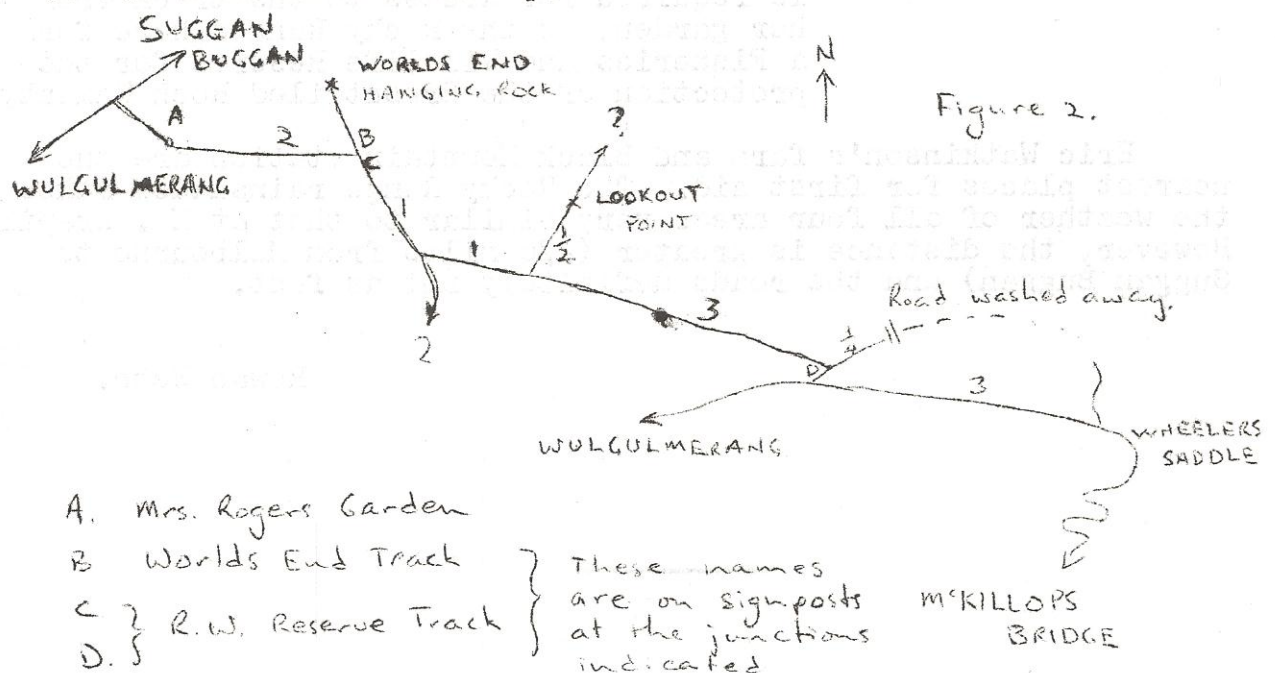 SUGGAN
BUGGAN
WORLDS END
HANGING ROCK
N
Figure 2.
A
2
B
C
?
WULGULMERANG
LOOKOUT
POINT
1
1
1/2
2
3
Road washed away.
1/4
D
3
WULGULMERANG
WHEELERS
SADDLE
A. Mrs. Rogers Garden
B Worlds End Track
C
D. R.W. Reserve Track
These names
are on signposts
at the junctions
indicated
McKILLOPS
BRIDGE